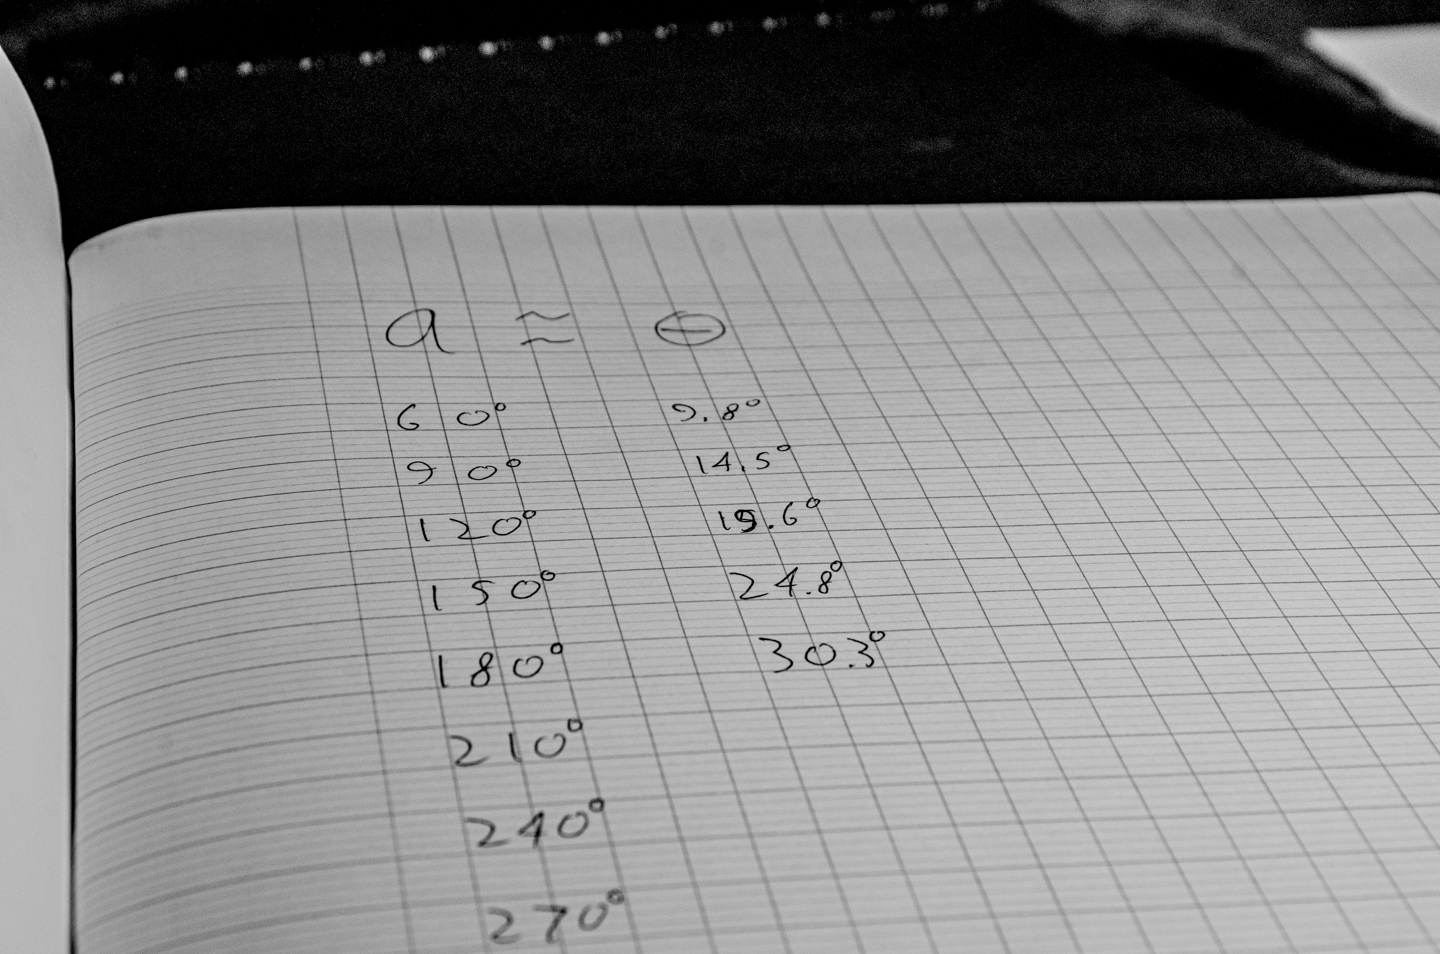 a ≈ Θ
60° 9.8°
90° 14.5°
120° 19.6°
150° 24.8°
180° 30.3°
210°
240°
270°